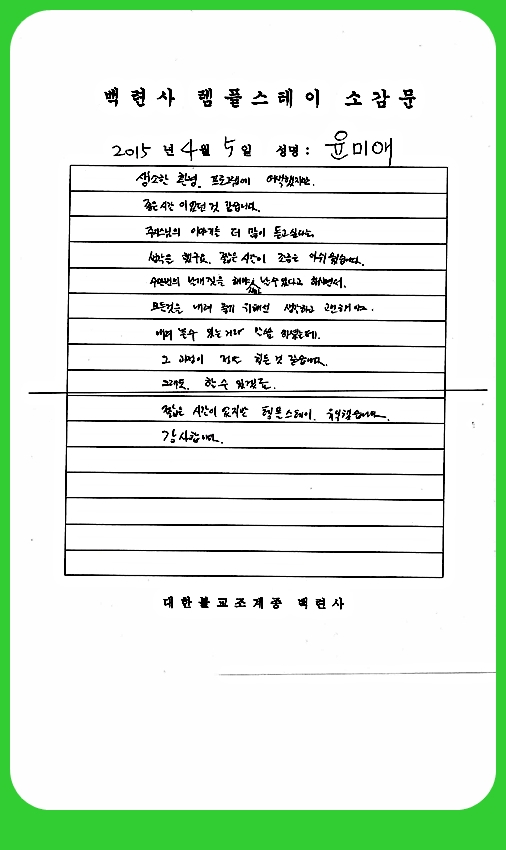 백련사 템플스테이 소감문
2015 년 4월 5일 성명 : 윤미애
생소한 환경. 프로그램에 어색했지만.
좋은시간 이었던것 같습니다.
주지스님의 이야기를 더 많이 듣고싶다는.
생각은 했구요. 짧은시간이 조금은 아쉬웠습니다.
수만번의 날개짓을 해야 날수있다고 하시면서.
모든것을 내려 놓기 위해선 생각하고 고민해야.
내려 놓을수 있는거라 말씀 하셨는데.
그 과정이 정말 힘든것 같습니다.
그래도. 할수 있겠죠.
짧은 시간이 였지만 템플스테이. 유익했습니다.
감사합니다.
대한불교조계종 백련사